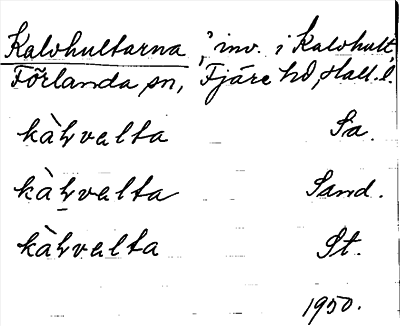 Kalvhultarna, inv. i Kalvhult,
Förlanda sn, Fjäre hd, Hall. l.
kàƫvalta Sa.
kàƫvalta Sand.
kàƫvalta St.
1950.